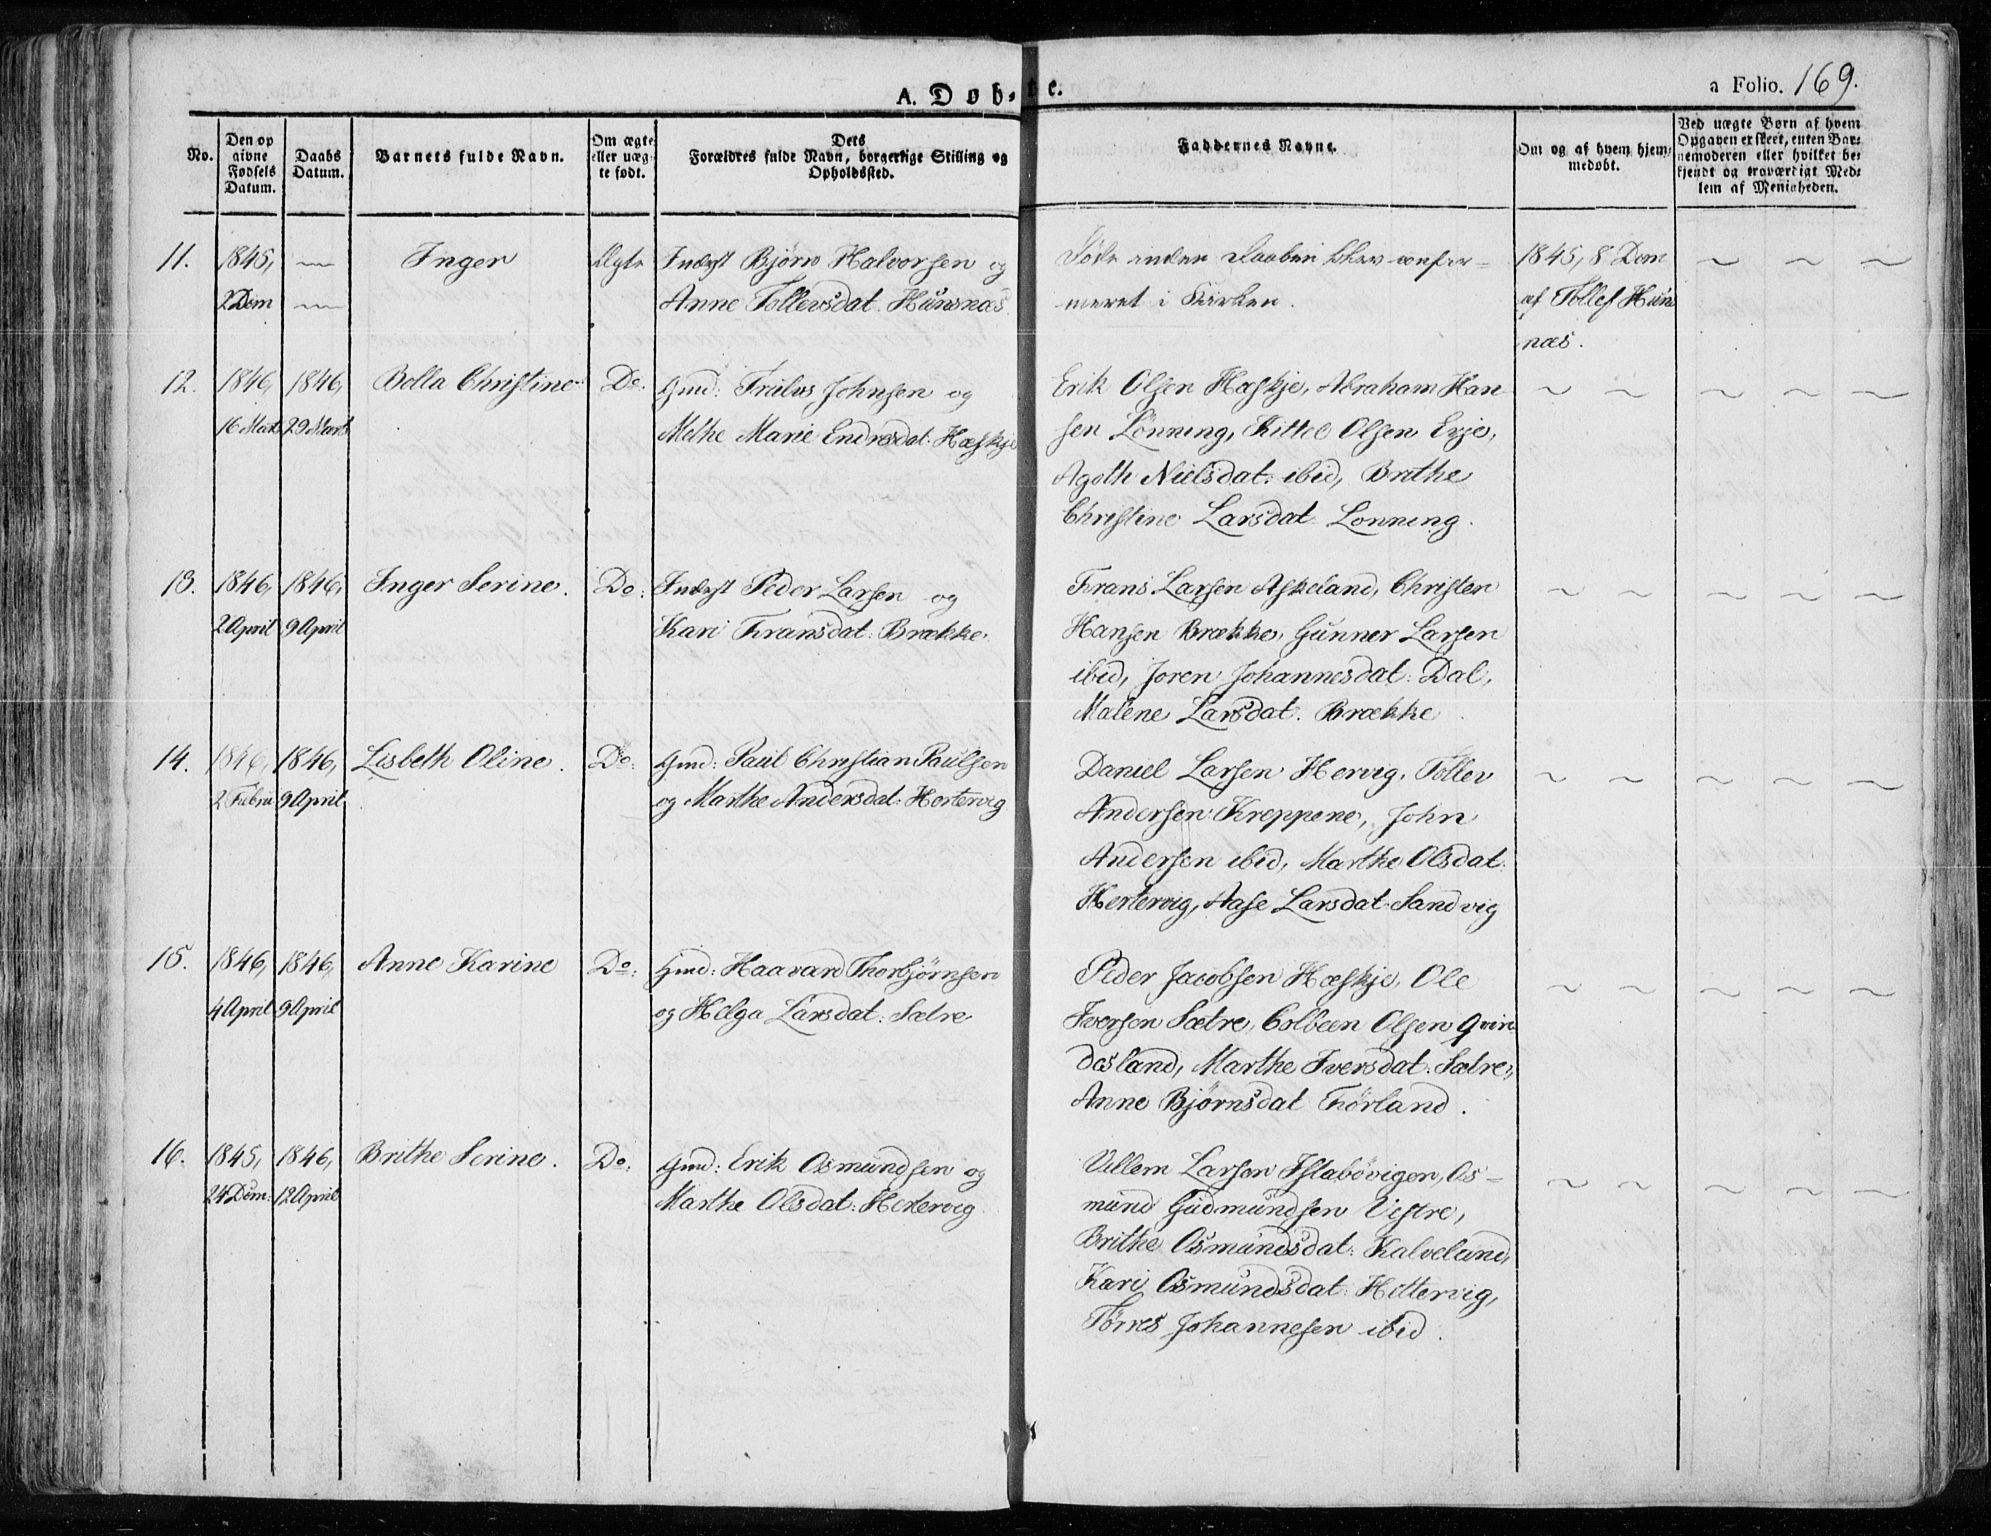 A. Døb-te.
a Folio. 169.
No.
Den op
givne
Fødsels
Datum.
Daabs
Datum.
Barnets fulde Navn.
Om ægte
eller uæg-
te født.
Dets
Forældres fulde Navn, borgerlige Stilling og
Opholdssted.
Faddernes Navne.
Om og af hvem hjem-
medøbt.
Ved uægte Børn af hvem
Opgaven er skeet, enten Bar-
nemoderen eller hvilket be-
kjendt og troværdigt Med-
lem af Menigheden.
11. 1845, Inger Ægte Inderst Bjørn Halvorsen og
2 Dcm Anne Tollevsdat. Hunsnæs
Døde inden Daaben blev confir-
meret i Kirken.
1845, 8 Dcm
af Tollef Huns
næs.
12. 1846, 1846, Bolla Christine Do. Gmd: Truls Johnsen og
16 Mart 29 Marts Methe Marie Endresdat: Hæskje
Erik Olsen Hæskje, Abraham Han-
sen Lønning, Kittel Olsen Erje,
Agoth Nielsdat: ibid, Brithe
Christine Larsdat Lonning.
13. 1846, 1846, Inger Serine. Do: Inderst Peder Larsen og
2 April 9 April Kari Fransdat: Brække.
Frans Larsen Askeland, Christen
Hansen Brække, Gunner Larsen
ibid, Joren Johannesdat: Dal,
Malene Larsdat. Brække
14. 1846, 1846, Lisbeth Oline. Do: Gmd: Paul Christian Paulsen
2 Febru 9 April og Marthe Andersdat: Hertervig
Daniel Larsen Hervig, Tollev
Andersen Kreppene, John
Andersen ibid, Marthe Olsdat.
Hertervig, Aase Larsdat Sandvig
15. 1846, 1846, Anne Karine Do: Gmd: Haavard Thorbjørnsen
4 April 9 April og Helga Larsdat: Sætre
Peder Jacobsen Hæskje, Ole
Iversen Sætre, Colbeen Olsen Qvin-
desland, Marthe Iversdat: Sætre,
Anne Bjørnsdat Førland.
16. 1845, 1846, Brithe Serine. Do: Gmd: Erik Osmundsen og
24 Dcm: 12 April Marthe Olsdat: Hertervig
Villem Larsen Islabøvigen, Os-
mund Gudmundsen Vestre,
Brithe Osmundsdat: Kalveland,
Kari Osmundsdat: Hettervig,
Tørres Johannesen ibid.